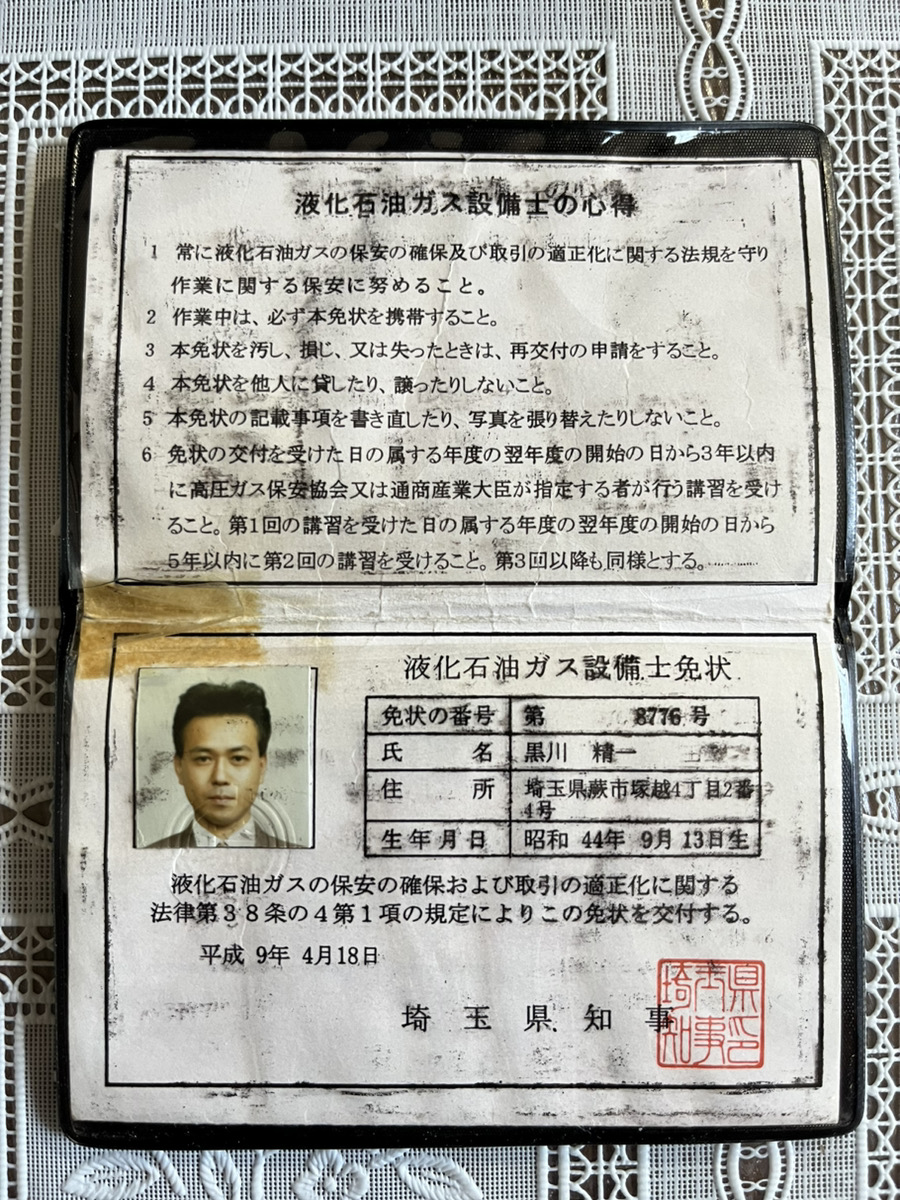 液化石油ガス設備士の心得
1 常に液化石油ガスの保安の確保及び取引の適正化に関する法規を守り
作業に関する保安に努めること。
2 作業中は、必ず本免状を携帯すること。
3 本免状を汚し、損じ、又は失ったときは、再交付の申請をすること。
4 本免状を他人に貸したり、譲ったりしないこと。
5 本免状の記載事項を書き直したり、写真を張り替えたりしないこと。
6 免状の交付を受けた日の属する年度の翌年度の開始の日から3年以内
に高圧ガス保安協会又は通商産業大臣が指定する者が行う講習を受け
ること。第1回の講習を受けた日の属する年度の翌年度の開始の日から
5年以内に第2回の講習を受けること。第3回以降も同様とする。
液化石油ガス設備士免状
免状の番号 第 8776 号
氏名 黒川 精一
住所 埼玉県蕨市塚越4丁目2番
4号
生年月日 昭和 44年 9月 13日生
液化石油ガスの保安の確保および取引の適正化に関する
法律第38条の4第1項の規定によりこの免状を交付する。
平成 9年 4月18日
埼玉県知事
埼玉県知事印